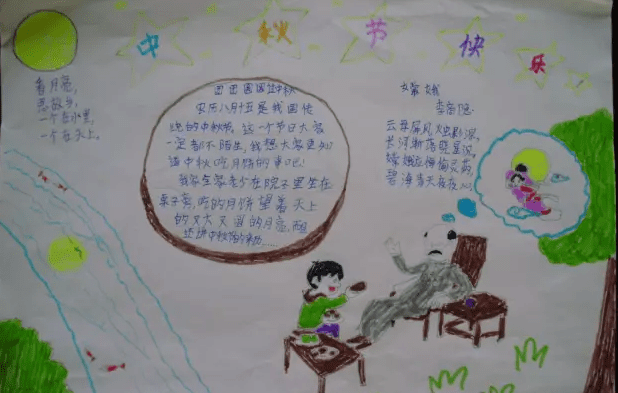 中秋节快乐
看月亮,
思故乡,
一个在水里,
一个在天上。
团团圆圆过中秋
农历八月十五是我国传
统的中秋节,这一个节日大家
一定都不陌生,我想大家更知
道中秋吃月饼的事吧!
我家全家老少在院子里坐在
桌子旁,吃的月饼望着天上
的又大又圆的月亮,而且
还讲中秋节的来历……
嫦娥
李商隐
云母屏风烛影深,
长河渐落晓星沉,
嫦娥应悔偷灵药,
碧海青天夜夜心